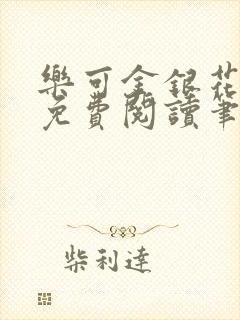 樂可金銀花
免費閱讀筆
柴利達